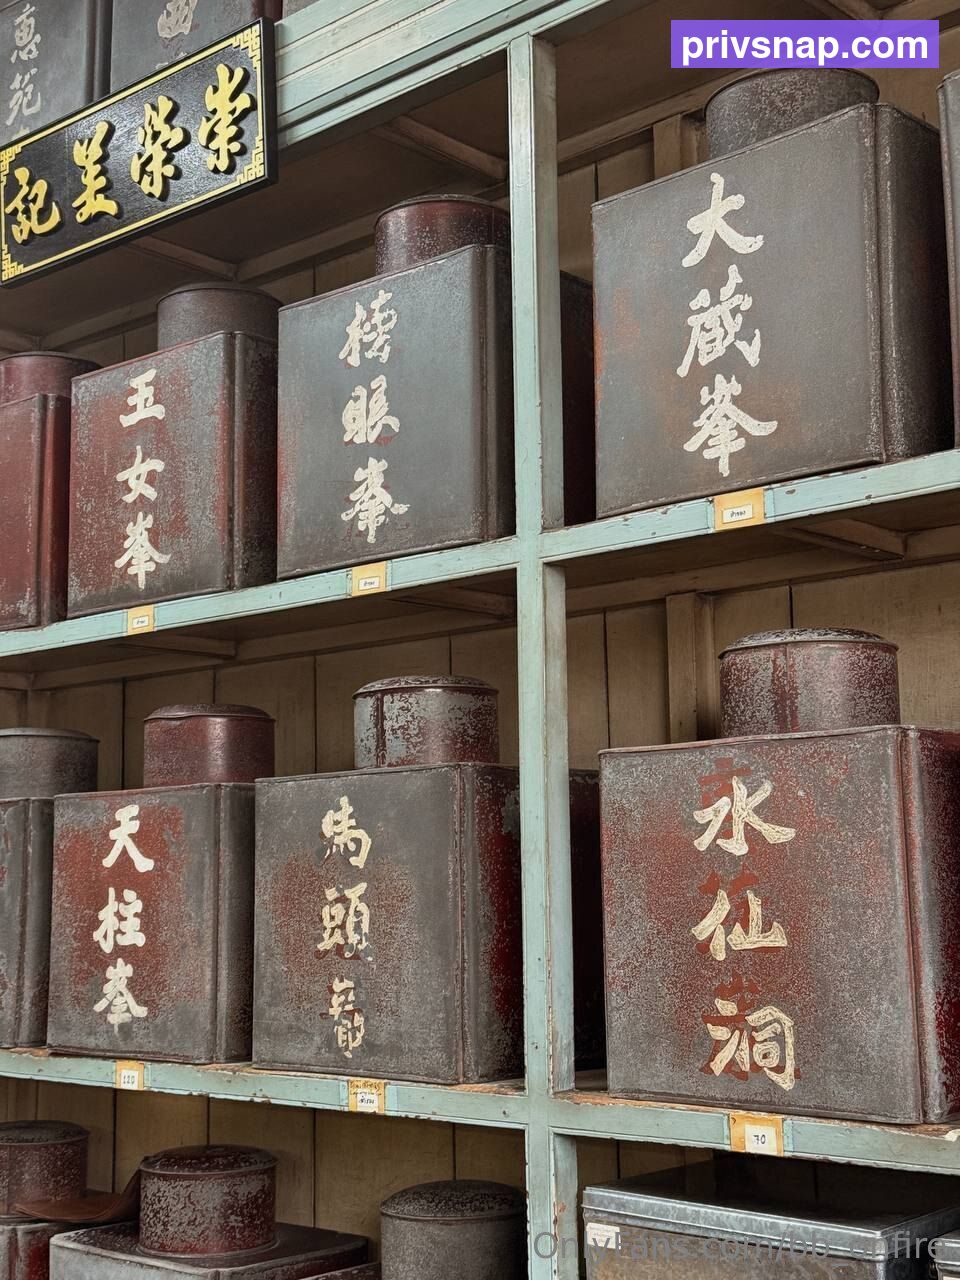 privsnap.com
惠苑
記美榮崇
大藏峯
眼峯
玉女峯
天柱峯
馬頭
永仙洞
120
70
OnlyFans.com/bb_onfire